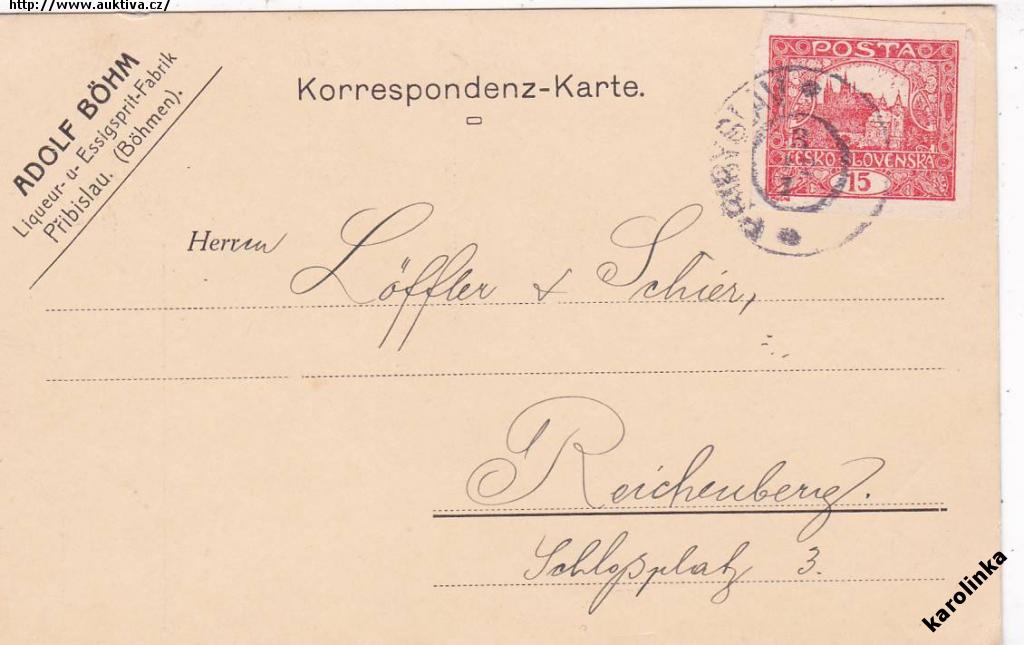 http://www.auktiva.cz/
ADOLF BÖHM
Liqueur- u- Essigsprit-Fabrik
Přibislau. (Böhmen).
Korrespondenz-Karte.
POSTA
ČESKO-SLOVENSKÁ
15
Herren Löffler & Schier,
Reichenberg.
Schloßplatz 3.
karolinka